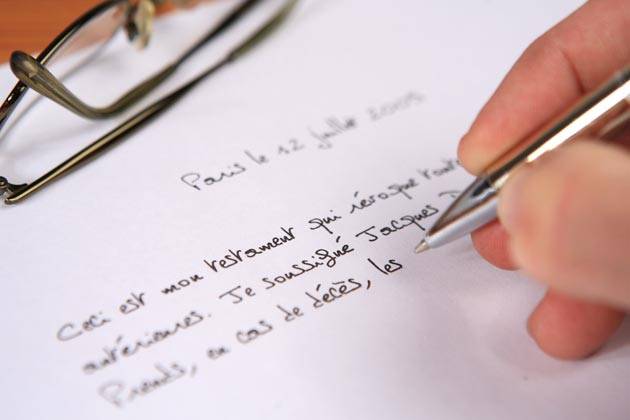 Paris le 12 Juillet 2005
Ceci est mon testament qui révoque
antérieures. Je soussigné Jacques D
Prends, en cas de décès, les